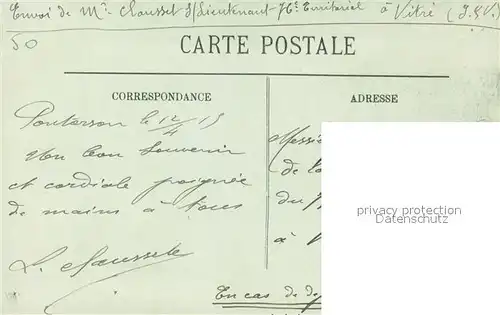 Envoi de Mr Chausset S/Lieutenant 76e Territorial à Vitré (I. &V.)
50
CARTE POSTALE
CORRESPONDANCE
ADRESSE
Pontorson le 12/4 15
Un bon souvenir
et cordiale poignée
de mains à tous
L. Chausset
Messie
de la
du
à
privacy protection
En cas de de